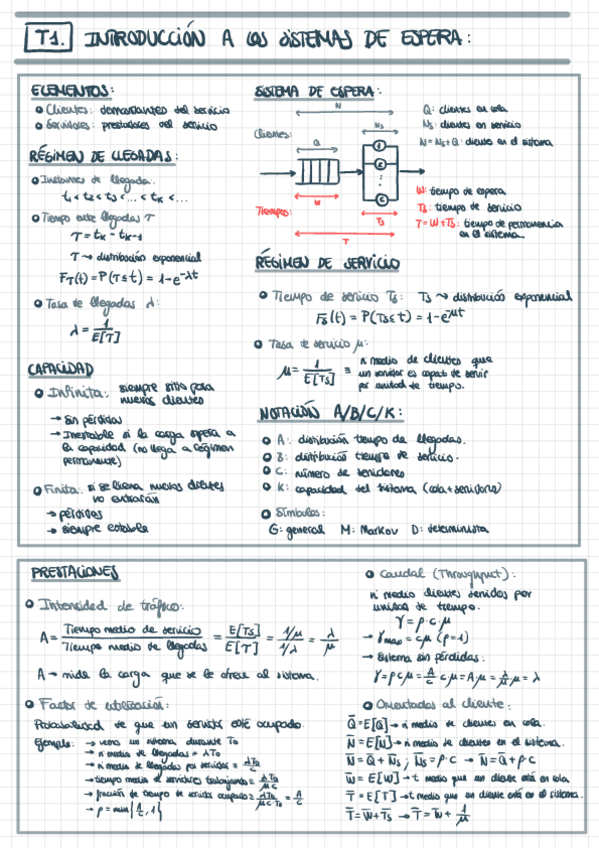 T1. INTRODUCCIÓN A LOS SISTEMAS DE ESPERA:
ELEMENTOS:
Clientes: demandantes del servicio
Servidores: prestadores del servicio
RÉGIMEN DE LLEGADAS:
Instantes de llegada:
t1 < t2 < t3 < ... < tK < ...
Tiempo entre llegadas T
T = tK - tK-1
T → distribución exponencial
FT(t) = P(T≤t) = 1-e^-λt
Tasa de llegadas λ:
λ = 1/E[T]
CAPACIDAD
Infinita: siempre sitio para
nuevos clientes
→ Sin pérdidas
→ Inestable si la carga supera a
la capacidad (no llega a régimen
permanente)
Finita: si se llena nuevos clientes
no entrarán
→ pérdidas
→ siempre estable
SISTEMA DE ESPERA:
N
Clientes:
Q
Ns
1
2
C
Tiempos:
W
Ts
T
Q: clientes en cola
Ns: clientes en servicio
N = Ns+Q: clientes en el sistema
W: tiempo de espera
Ts: tiempo de servicio
T = W+Ts: tiempo de permanencia
en el sistema.
RÉGIMEN DE SERVICIO
Tiempo de servicio Ts: Ts → distribución exponencial
Fs(t) = P(Ts≤t) = 1-e^-μt
Tasa de servicio μ:
μ = 1/E[Ts] ≡ nº medio de clientes que
un servidor es capaz de servir
por unidad de tiempo.
NOTACIÓN A/B/C/K:
A: distribución tiempo de llegadas.
B: distribución tiempo de servicio.
C: número de servidores
K: capacidad del sistema (cola+servidores)
Símbolos:
G: general M: Markov D: determinista
PRESTACIONES
Intensidad de tráfico:
A = Tiempo medio de servicio / Tiempo medio de llegadas = E[Ts]/E[T] = 1/μ / 1/λ = λ/μ
A → mide la carga que se le ofrece al sistema.
Factor de utilización:
Probabilidad de que un servidor esté ocupado.
Ejemplo: → vemos un sistema durante T0
→ nº medio de llegadas = λT0
→ nº medio de llegadas por servidor = λT0/C
→ tiempo medio de servidores trabajando = λT0/μC
→ fracción de tiempo de servidor ocupado = λT0/μC·T0 = A/C
→ ρ = min{A/C, 1}
Caudal (Throughput):
nº medio clientes servidos por
unidad de tiempo.
γ = ρ·C·μ
→ γmax = Cμ (ρ=1)
→ Sistema sin pérdidas:
γ = ρCμ = A/C Cμ = Aμ = λ/μ μ = λ
Orientadas al cliente:
Q̄ = E[Q] → nº medio de clientes en cola.
N̄ = E[N] → nº medio de clientes en el sistema.
N̄ = Q̄ + N̄s, N̄s = ρ·C → N̄ = Q̄ + ρC
W̄ = E[W] → t medio que un cliente está en cola
T̄ = E[T] → t medio que un cliente está en el sistema.
T̄ = W̄ + T̄s → T̄ = W̄ + 1/μ